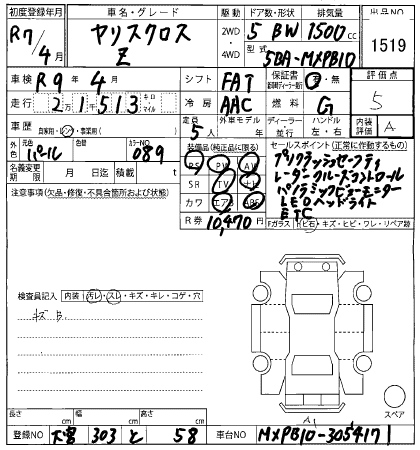 初度登録年月
R7/4月
車名・グレード
ヤリスクロス
Z
駆動
2WD
・
4WD
ドア数・形状
5 BW
排気量
1500cc
型式
5BA-MXPB10
出品NO
1519
車検 R9年4月
シフト FAT
保証書 有・無
評価点
5
走行 2万1513 キロ・マイル
冷房 AAC
燃料 G
車歴 自家用・レン・事業用( )
定員 5人
外車モデル 年
ディーラー・並行
ハンドル 左・右
内装評価 A
外色 元色 パール
色替
カラーNO 089
名義変更期限 月 日迄
積載 t
装備品(純正品に限る)
PS PW AW
SR TV ナビ
カワ エアB ABS
R券 10,470円
セールスポイント(正常に作動するもの)
プリクラッシュセーフティ
レーダークルーズコントロール
パノラミックビューモニター
LEDヘッドライト
ETC
注意事項(欠品・修復・不具合箇所および状態)
Fガラス 飛び石・キズ・ヒビ・ワレ・リペア跡
検査員記入 内装 汚レ・スレ・キズ・キレ・コゲ・穴
A1
スペア
長さ cm 幅 cm 高さ cm
登録NO 大宮 303 と 58
車台NO MXPB10-3054171